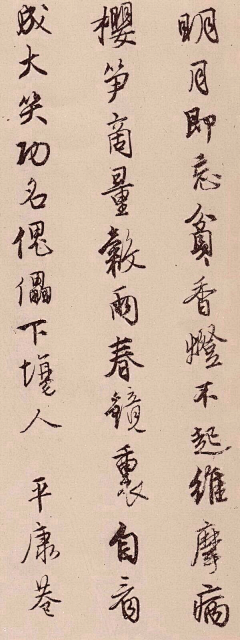 明月即忘貧香燈不起維摩病
櫻笋商量穀雨春鏡裏自看
成大笑功名傀儡下塲人 平康巷